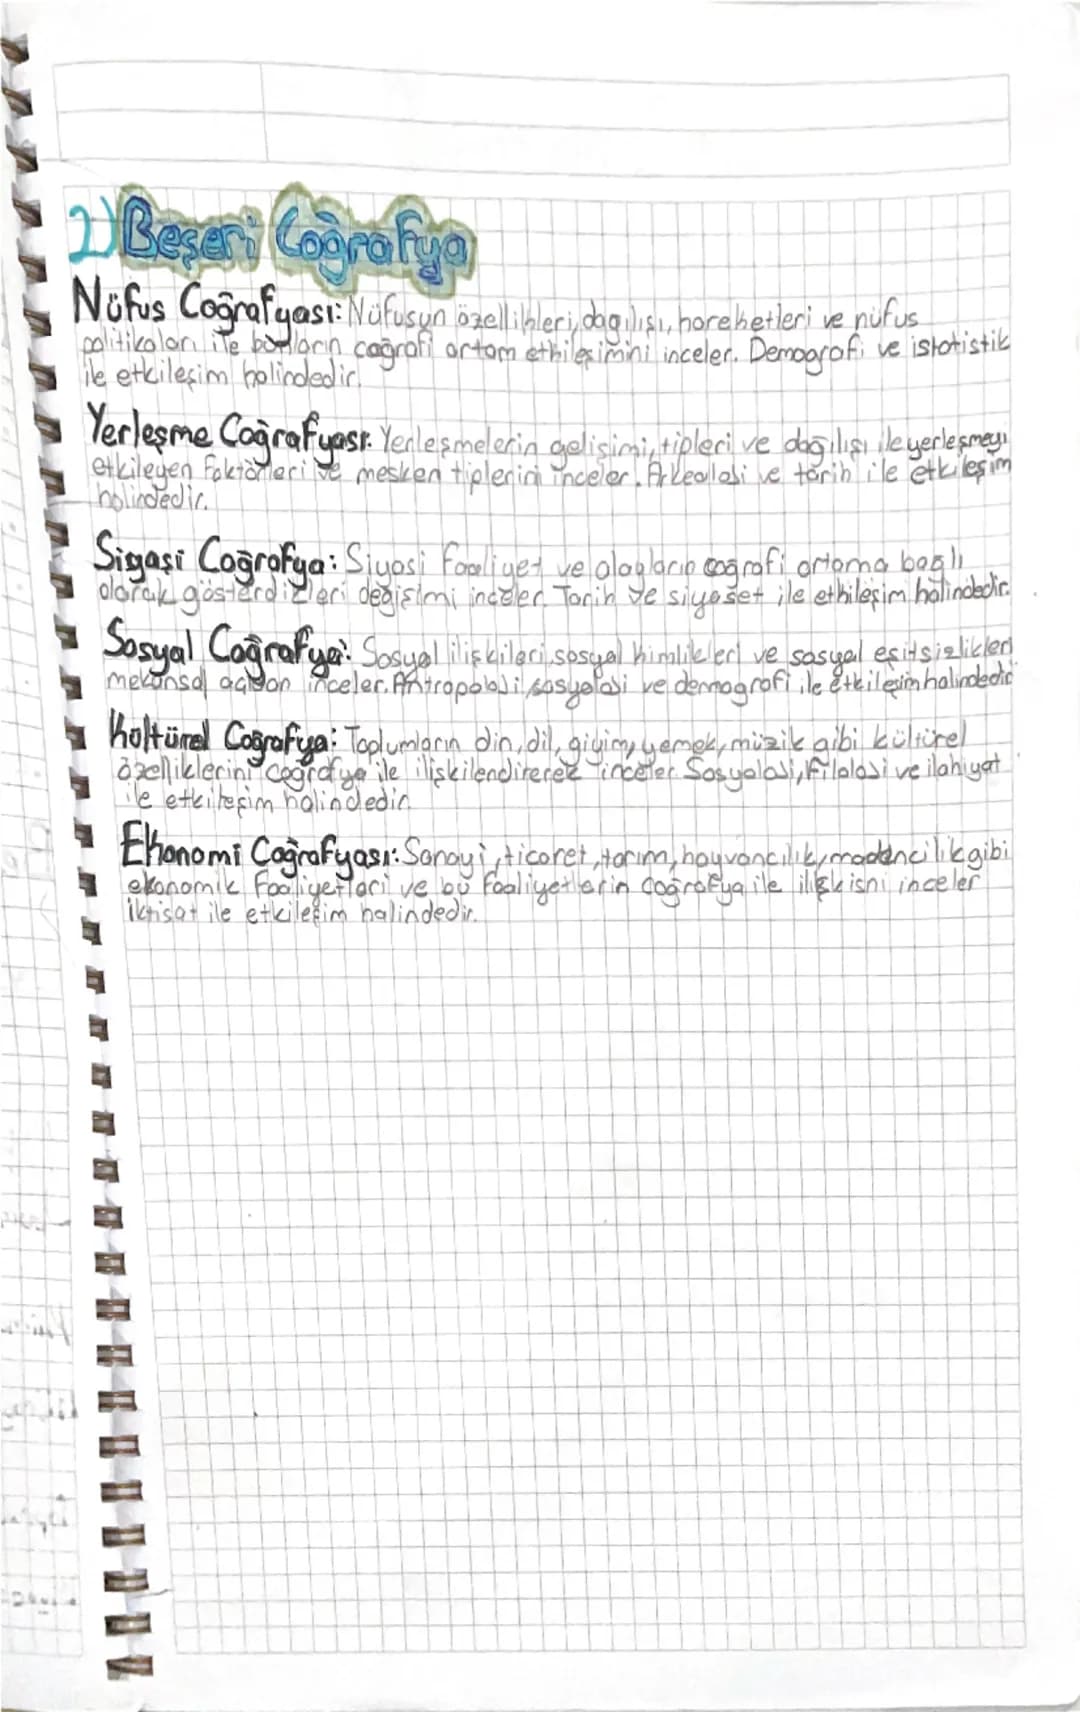 2) Beşeri Coğrafya
Nüfus Coğrafyası: Nüfusun özellikleri, dağılışı, hareketleri ve nüfus
politikaları ile bunların coğrafi ortam etkileşimini inceler. Demografi ve istatistik
ile etkileşim halindedir.
Yerleşme Coğrafyası: Yerleşmelerin gelişimi, tipleri ve dağılışı ile yerleşmeyi
etkileyen faktörleri ve mesken tiplerini inceler. Arkeoloji ve tarih ile etkileşim
halindedir.
Siyasi Coğrafya: Siyasi faaliyet ve olayların coğrafi ortama bağlı
olarak gösterdikleri değişimi inceler. Tarih ve siyaset ile etkileşim halindedir.
Sosyal Coğrafya: Sosyal ilişkileri, sosyal kimlikleri ve sosyal eşitsizlikleri
mekansal açıdan inceler. Antropoloji, sosyoloji ve demografi ile etkileşim halindedir
Kültürel Coğrafya: Toplumların din, dil, giyim, yemek, müzik gibi kültürel
özelliklerini coğrafya ile ilişkilendirerek inceler. Sosyoloji, filoloji ve ilahiyat
ile etkileşim halindedir.
Ekonomi Coğrafyası: Sanayi, ticaret, tarım, hayvancılık, madencilik gibi
ekonomik faaliyetleri ve bu faaliyetlerin coğrafya ile ilişkisni inceler
iktisat ile etkileşim halindedir.